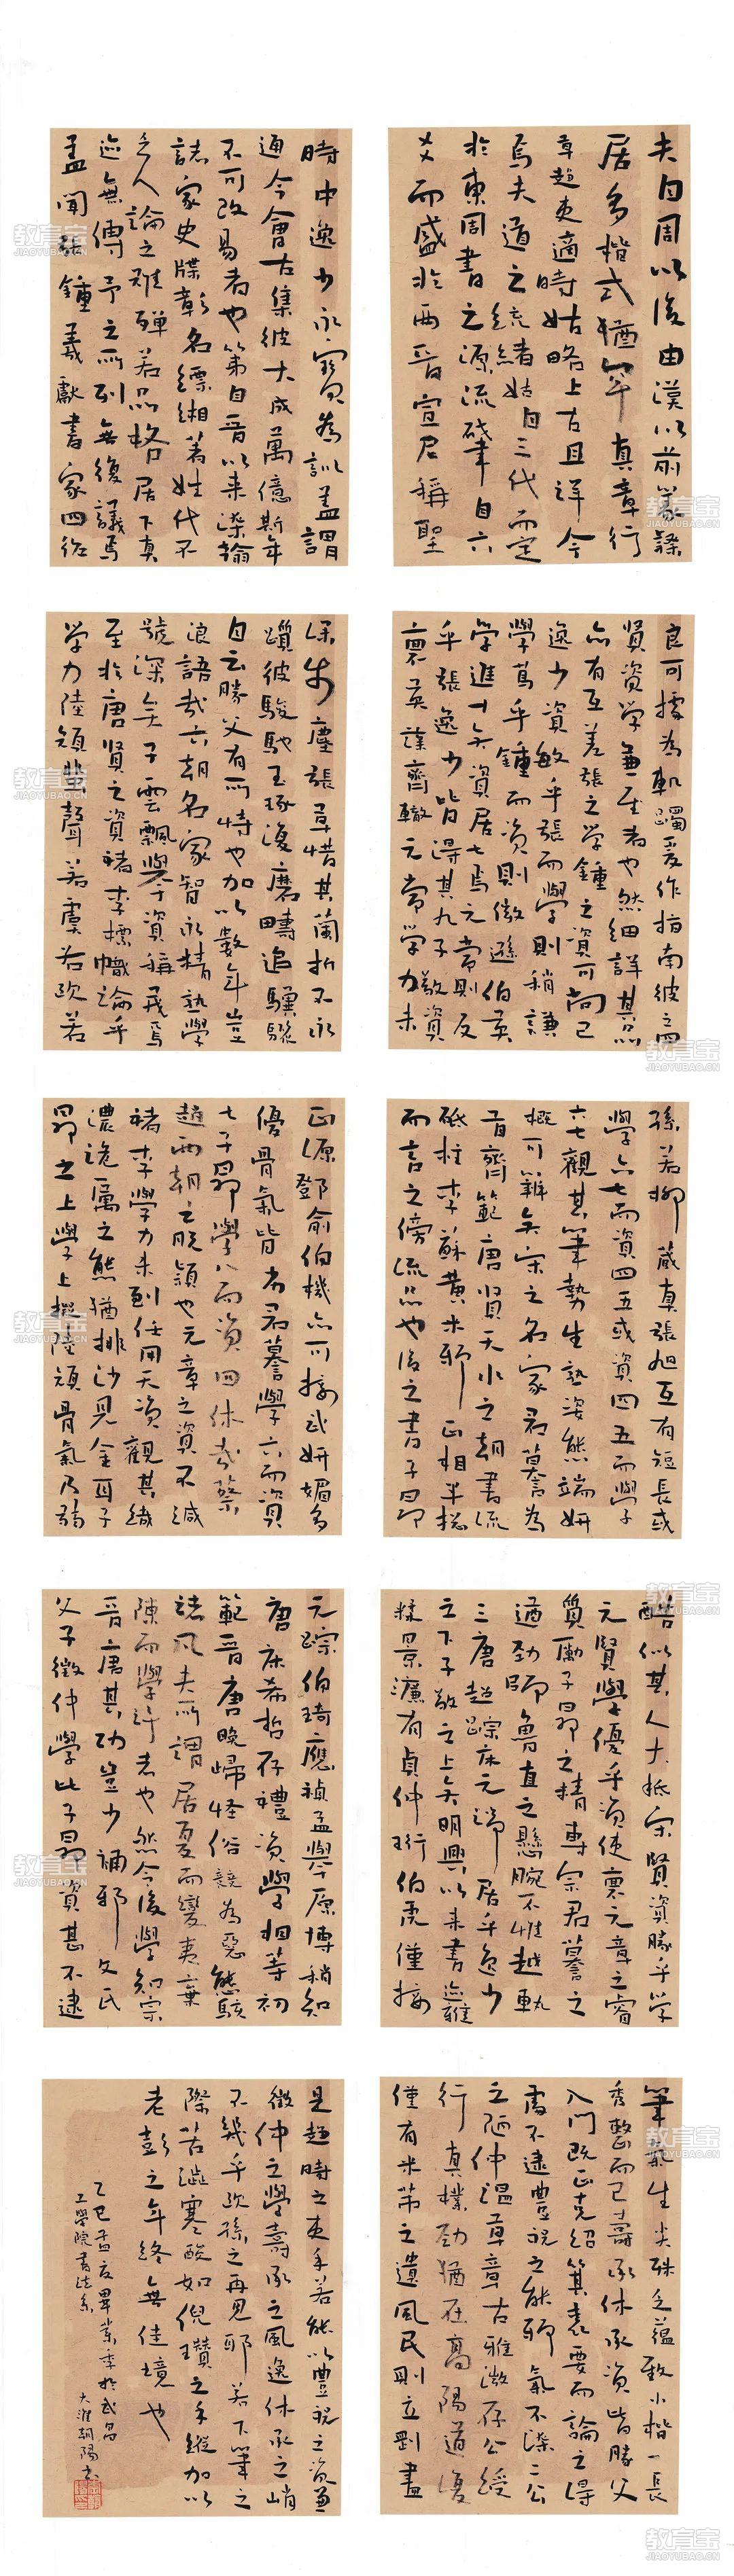 夫自周以後由漢以前篆隸
居多楷式猶罕真章行
草趨吏適時姑略上古且詳今
焉夫道之統緒始自三代而定
於東周書之源流肇自六
爻而盛於兩晉宣尼稱聖
時中逸少永寶為訓蓋謂
通今會古集彼大成萬億斯年
不可改易者也第自晉以來染翰
誌家史牒彰名縹緗著姓代不
乏人論之難殫若品格居下真
迹無傳予之所列無復議焉
盖聞張鍾羲獻書家四絕
良可據為軌躅爰作指南彼之四
賢資學兼至者也然細詳其品
亦有互差張之學鍾之資可尚已
逸少資敏乎張而學則稍謙
學篤乎鍾而資則微遜伯英
學進十矣資居七焉元常則反
乎張逸少皆得其九子敬資
稟英藻齊轍元常學力未
深步塵張草惜其蘭折不永
躓彼駿馳玉琢復磨疇追驥驟
自云勝父有所恃也加以數年豈
浪語哉六朝名家智永精熟學
號深矣子雲飄舉資稱茂焉
至於唐賢之資褚李標幟論乎
学力陸顏蜚聲若虞若歐若
孫若柳藏真張旭互有短長或
學六七而資四五或資四五而學
六七觀其筆勢生熟姿態端妍
概可辨矣宋之名家君謨為
首齊範唐賢天水之朝書流
砥柱李蘇黃米邪正相半總
而言之傍流品也後之書子昂
正源鄧俞伯機亦可接武妍媚多
優骨氣皆劣君謨學六而資
七子昂學八而資四休哉蔡
趙兩朝之脫穎也元章之資不減
褚李學力未到任用天資觀其纖
濃詭厲之態猶排沙見金耳子
昂之上學上擬陸顏骨氣乃弱
酷似其人大抵宋賢資勝乎學
元賢學優乎資使稟元章之睿
質勵子昂之精專宗君謨之
遒勁師魯直之懸腕不惟越軌
三唐超蹤宋元端居乎逸少
之下子敬之上矣明興以來書迹雜
糅景濂有貞仲珩伯虎僅接
元蹤伯琦應禎孟舉原博稍知
唐宋希哲存禮資學相等初
範晉唐晚歸怪俗競為惡態駭
諸凡夫所謂居夏而變夷棄
陳而學許者也然令後學知宗
晉唐其功豈少補邪文氏
父子徵仲學比子昂資甚不逮
筆氣生尖殊乏蘊致小楷一長
秀整而已壽承休承資皆勝父
入門既正克紹箕裘要而論之得
處不逮豐祝之能邪氣不染二公
之陋仲溫草章古雅微存公綬
行真樸勁猶在高陽道復
僅有米芾之遺風民則立剛盡
是趨時之吏手若能以豐祝之資兼
徵仲之學壽承之風逸休承之峭
不幾乎歐孫之再見耶若下筆之
際苦澀寒酸如倪瓚之手縱加以
老彭之年終無佳境也
乙巳孟夏畢業季於武昌
工學院書法系
大淮朝陽書
教育宝
JIAOYUBAO.CN